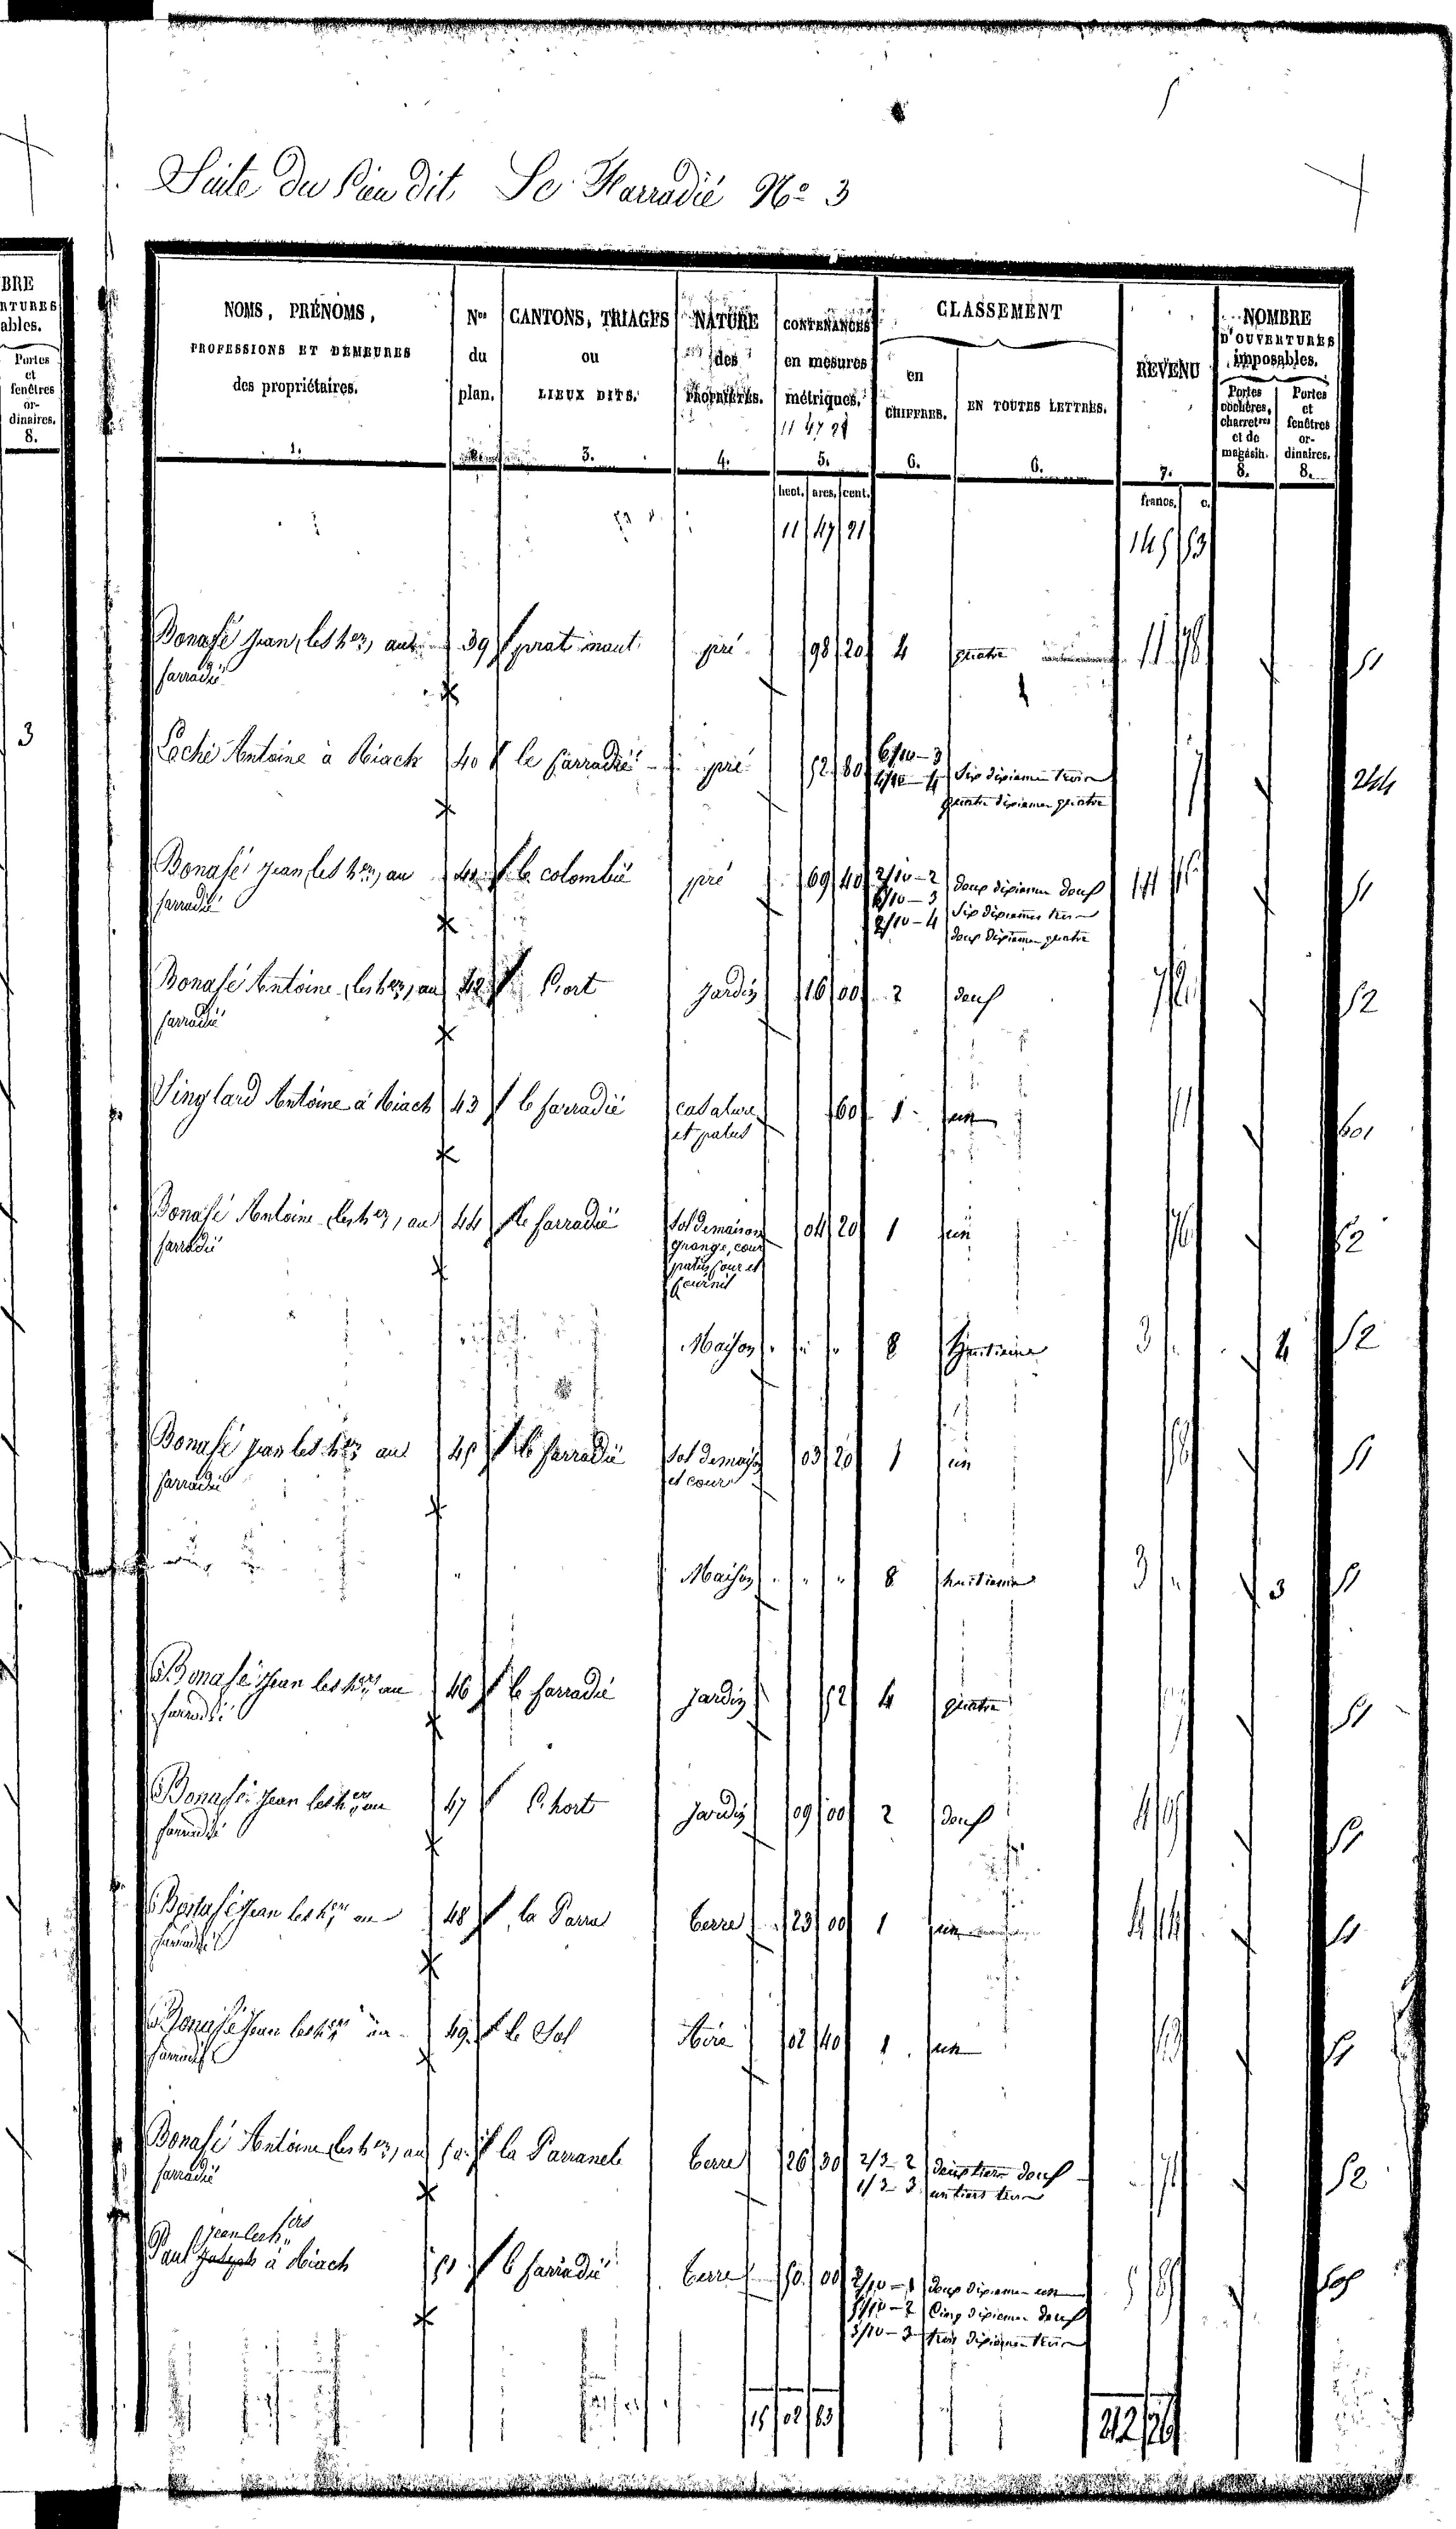 Suite du Lieu dit Le Farradié No 3
BRE
RTURES
ables.
Portes
et
fenêtres
or-
dinaires.
8.
3
NOMS, PRÉNOMS,
PROFESSIONS ET DEMEURES
des propriétaires.
1.
Nos
du
plan.
CANTONS, TRIAGES
ou
LIEUX DITS.
3.
NATURE
des
PROPRIÉTÉS.
4.
CONTENANCES
en mesures
métriques.
11 47 21
5.
CLASSEMENT
en
CHIFFRES.
6.
EN TOUTES LETTRES.
6.
REVENU
7.
NOMBRE
D'OUVERTURES
imposables.
Portes
cochères,
charretres
et de
magasin.
8.
Portes
et
fenêtres
or-
dinaires.
8.
hect. ares. cent. francs. c.
11 47 21 145 53
Bonafé Jean, les hers, au 39 prat naut pré 98 20 4 quatre 11 78 51
farradié
Loché Antoine à Riach 40 le farradié pré 52 80 6/10 - 3 six dixieme trois 7 244
4/10 - 4 quatre dixiemes quatre
Bonafé Jean, les hers, au 41 le colombié pré 69 40 2/10 - 2 deux dixiemes deux 14 51
farradié 6/10 - 3 six dixiemes trois
2/10 - 4 deux dixiemes quatre
Bonafé Antoine, les hers, au 42 L'ort jardin 16 00 2 deux 7 20 52
farradié
Singlard Antoine à Riach 43 le farradié casalure 60 1 un 11 601
et patus
Bonafé Antoine, les hers, au 44 le farradié sol de maison 04 20 1 un 76 52
farradié grange, cour
patus, four et
fournil
Maison " " " 8 huitieme 3 " 4 52
Bonafé Jean les hers au 45 le farradié sol de maison 03 20 1 un 58 51
farradié et cour
" Maison " " " 8 huitieme 3 " 3 51
Bonafé Jean les hers au 46 le farradié jardin 52 4 quatre 51
farradié
Bonafé Jean les hers au 47 L'hort jardin 09 00 2 deux 4 05 51
farradié
Bonafé Jean les hers au 48 la Parra terre 23 00 1 un 4 14 51
farradié
Bonafé Jean les hers au 49 le Sol Aire 02 40 1 un 43 51
farradié
Bonafé Antoine, les hers, au 50 la Parranele terre 26 30 2/3 2 deux tiers deux 52
farradié 1/3 3 un tiers trois
Jean les hers
Paul Joseph à Riach 51 le farradié terre 50 00 2/10 - 1 deux dixiemes un 5 85 505
5/10 - 2 Cinq dixiemes deux
3/10 - 3 trois dixiemes trois
15 02 83 212 26